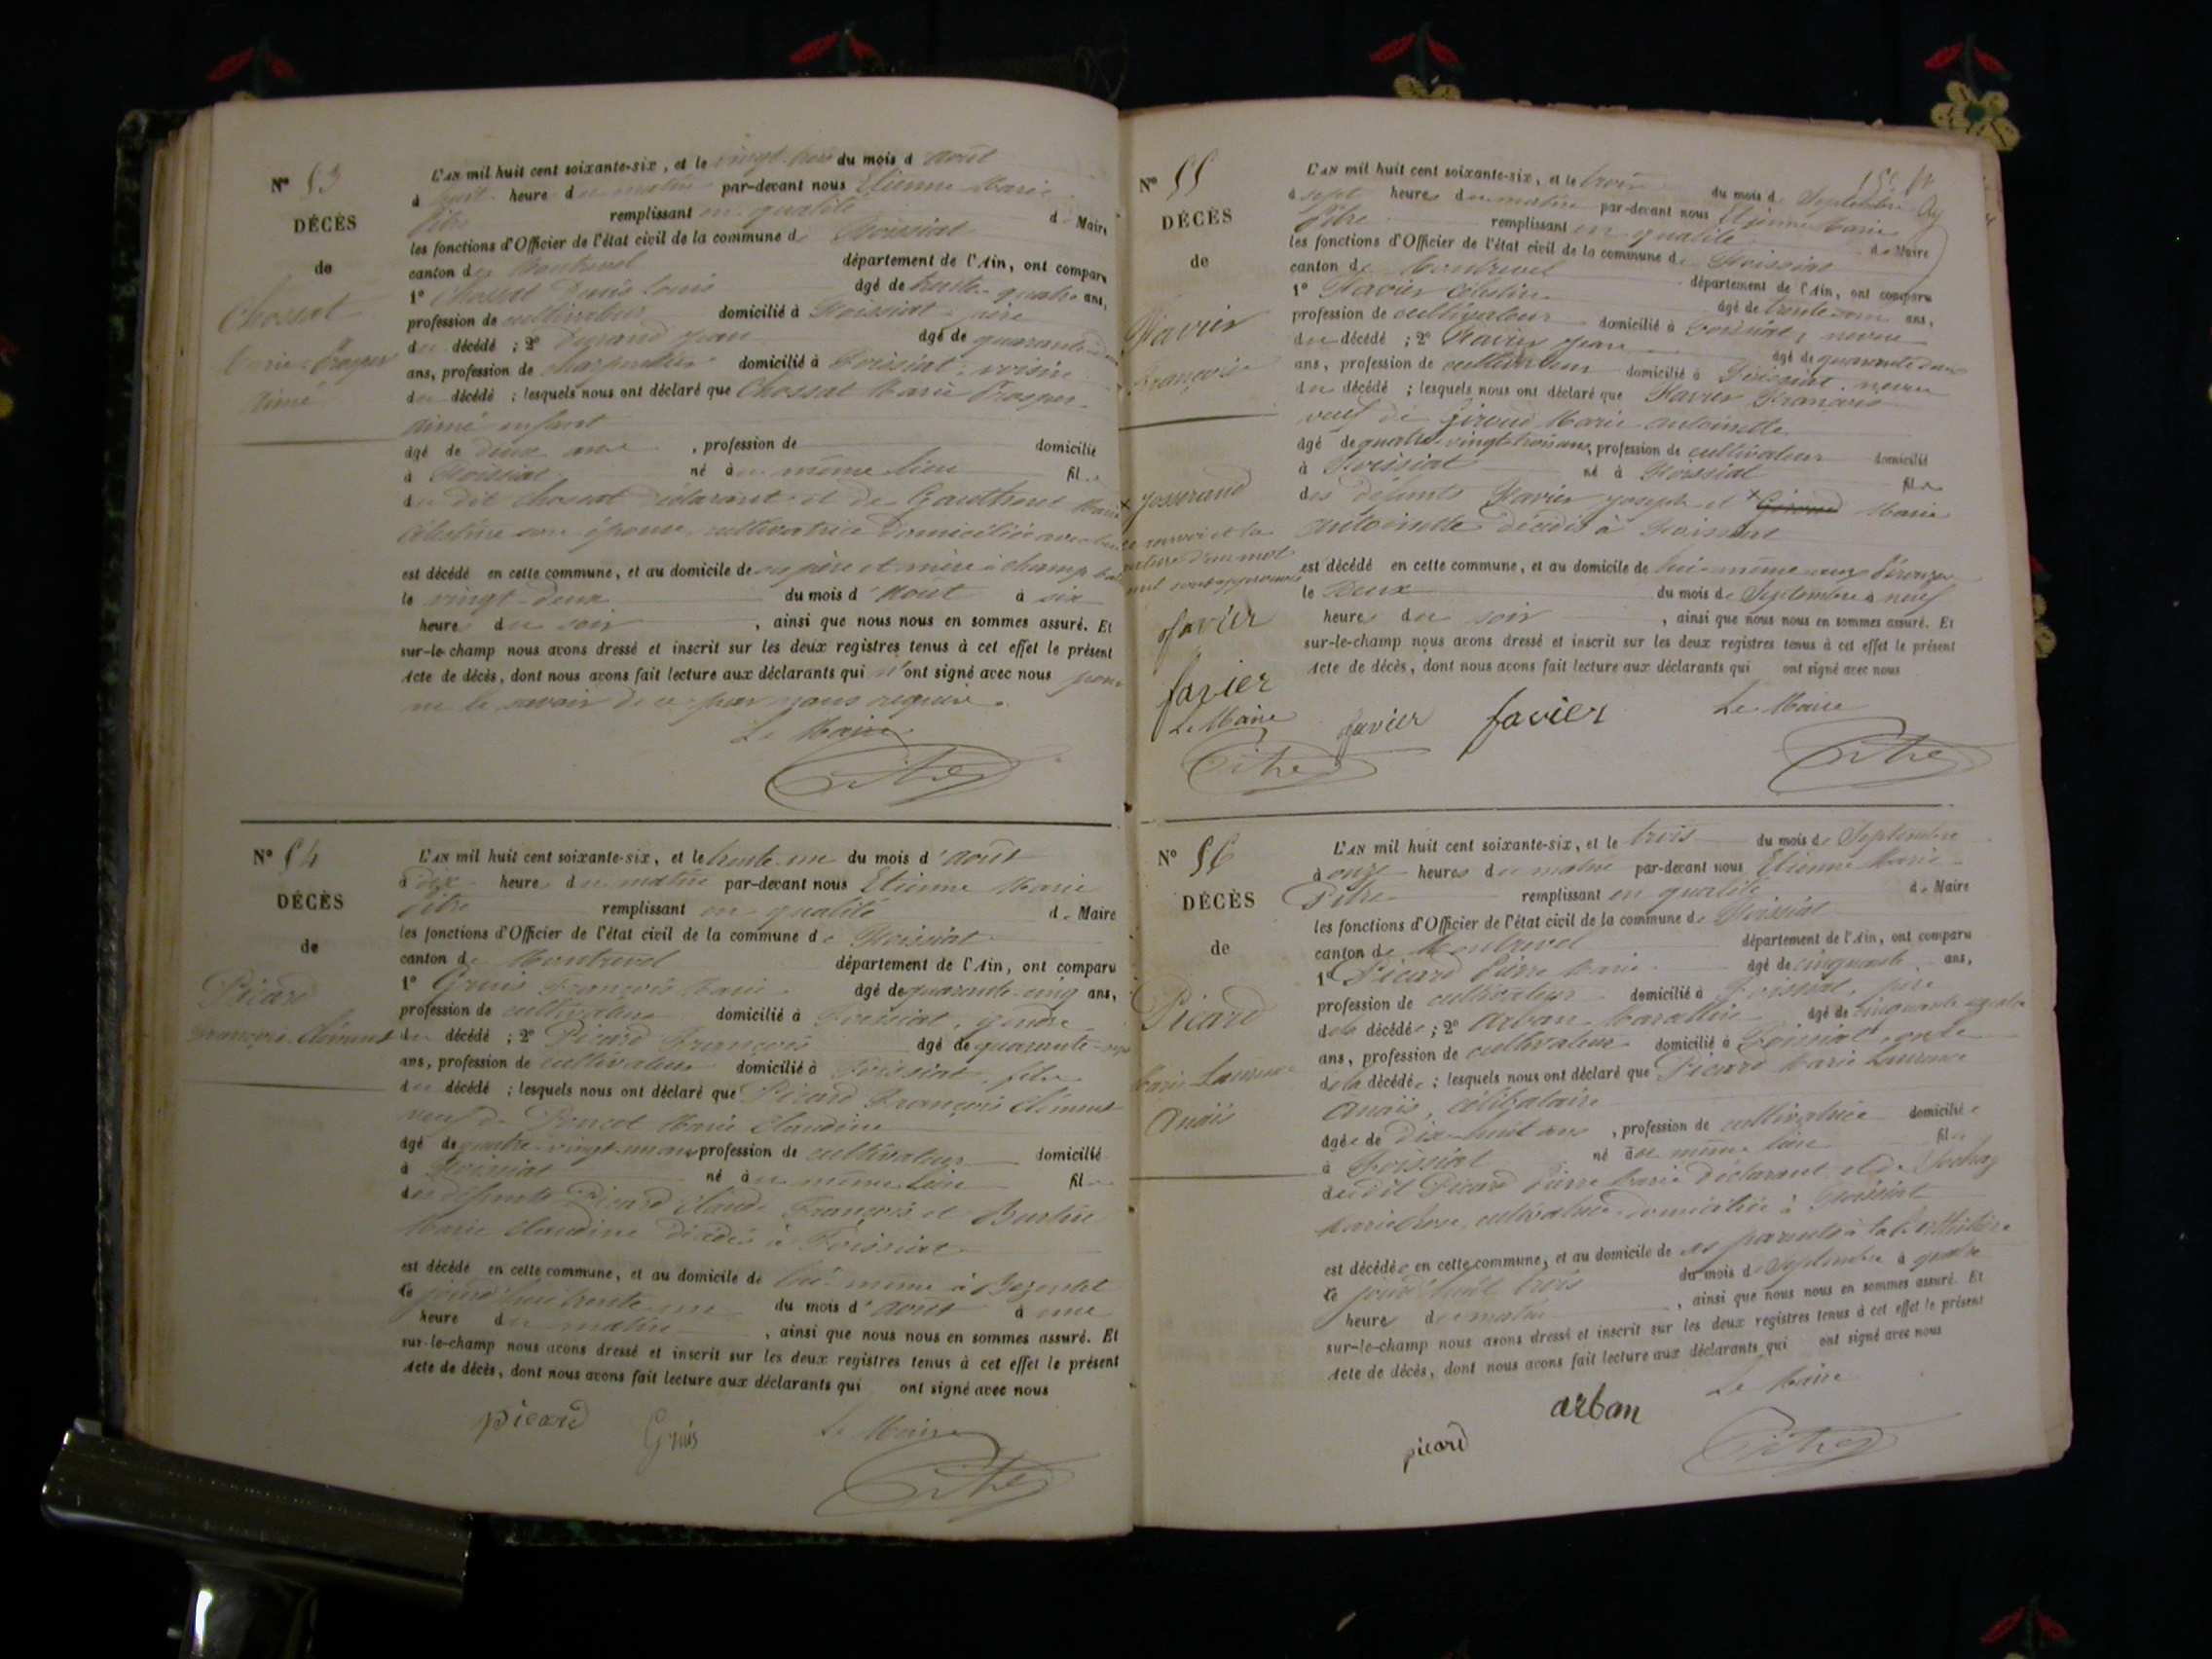 N° 53
DÉCÈS
de
Chossat
Marie Prosper
Aimé
L'AN mil huit cent soixante-six, et le vingt-trois du mois d'Août
à huit heure du matin par-devant nous Etienne Marie
Pitre remplissant en qualité de Maire
les fonctions d'Officier de l'état civil de la commune de Foissiat
canton de Montrevel département de l'Ain, ont comparu
1° Chossat Denis Louis âgé de trente-quatre ans,
profession de cultivateur domicilié à Foissiat, père
du décédé ; 2° Durand Jean âgé de quarante
ans, profession de charpentier domicilié à Foissiat, voisin
du décédé ; lesquels nous ont déclaré que Chossat Marie Prosper
Aimé enfant
âgé de deux ans, profession de domicilié
à Foissiat né au même lieu fils
du dit Chossat déclarant et de Gauthenet Marie
Célestine son épouse, cultivatrice domiciliée avec
est décédé en cette commune, et au domicile de ses père et mère à champ
le vingt-deux du mois d'Août à six
heure du soir, ainsi que nous nous en sommes assuré. Et
sur-le-champ nous avons dressé et inscrit sur les deux registres tenus à cet effet le présent
Acte de décès, dont nous avons fait lecture aux déclarants qui n'ont signé avec nous pour
ne le savoir de ce par nous requis.
Le Maire
Pitre
N° 54
DÉCÈS
de
Picard
François Clément
L'AN mil huit cent soixante-six, et le trente-un du mois d'août
à dix heure du matin par-devant nous Etienne Marie
Pitre remplissant en qualité de Maire
les fonctions d'Officier de l'état civil de la commune de Foissiat
canton de Montrevel département de l'Ain, ont comparu
1° Gruis François Marie âgé de quarante-cinq ans,
profession de cultivateur domicilié à Foissiat, gendre
du décédé ; 2° Picard François âgé de quarante-
ans, profession de cultivateur domicilié à Foissiat, fils
du décédé ; lesquels nous ont déclaré que Picard François Clément
veuf de Poncet Marie Claudine
âgé de quatre-vingt-un ans profession de cultivateur domicilié
à Foissiat né au même lieu fils
des défunts Picard Claude François et
Marie Claudine décédés à Foissiat
est décédé en cette commune, et au domicile de lui-même à
le jourd'hui trente-un du mois d'août à une
heure du matin, ainsi que nous nous en sommes assuré. Et
sur-le-champ nous avons dressé et inscrit sur les deux registres tenus à cet effet le présent
Acte de décès, dont nous avons fait lecture aux déclarants qui ont signé avec nous
picard Gruis Le Maire
Pitre
N° 55
DÉCÈS
de
Favier
François
+ Josserand
le renvoi et la
rature d'un mot
nul sont approuvés
favier
favier
Le Maire
Pitre
L'AN mil huit cent soixante-six, et le trois du mois de Septembre
à sept heures du matin par-devant nous Etienne Marie
Pitre remplissant en qualité de Maire
les fonctions d'Officier de l'état civil de la commune de Foissiat
canton de Montrevel département de l'Ain, ont comparu
1° Favier Célestin âgé de trente- ans,
profession de cultivateur domicilié à Foissiat, neveu
du décédé ; 2° Favier Jean âgé de quarante-deux
ans, profession de cultivateur domicilié à Foissiat, neveu
du décédé ; lesquels nous ont déclaré que Favier François
veuf de Giroud Marie Antoinette
âgé de quatre-vingt-trois ans, profession de cultivateur domicilié
à Foissiat né à Foissiat fils
des défunts Favier Joseph et + Giroud Marie
Antoinette décédés à Foissiat
est décédé en cette commune, et au domicile de lui-même aux
le Deux du mois de Septembre à neuf
heure du soir, ainsi que nous nous en sommes assuré. Et
sur-le-champ nous avons dressé et inscrit sur les deux registres tenus à cet effet le présent
Acte de décès, dont nous avons fait lecture aux déclarants qui ont signé avec nous
favier favier Le Maire
Pitre
N° 56
DÉCÈS
de
Picard
Marie Laurence
Anaïs
L'AN mil huit cent soixante-six, et le trois du mois de Septembre
à onze heures du matin par-devant nous Etienne Marie
Pitre remplissant en qualité de Maire
les fonctions d'Officier de l'état civil de la commune de Foissiat
canton de Montrevel département de l'Ain, ont comparu
1° Picard Pierre Marie âgé de cinquante ans,
profession de cultivateur domicilié à Foissiat, père
de la décédée ; 2° Arban âgé de cinquante-quatre
ans, profession de cultivateur domicilié à Foissiat, oncle
de la décédée ; lesquels nous ont déclaré que Picard Marie Laurence
Anaïs, célibataire
âgée de Dix-huit ans, profession de cultivatrice domiciliée
à Foissiat né au même lieu fille
du dit Picard Pierre Marie déclarant et de
Marie Rose, cultivatrice domiciliée à Foissiat
est décédée en cette commune, et au domicile de ses parents à la
le jourd'hui trois du mois de Septembre à quatre
heure du matin, ainsi que nous nous en sommes assuré. Et
sur-le-champ nous avons dressé et inscrit sur les deux registres tenus à cet effet le présent
Acte de décès, dont nous avons fait lecture aux déclarants qui ont signé avec nous
picard arban Le Maire
Pitre